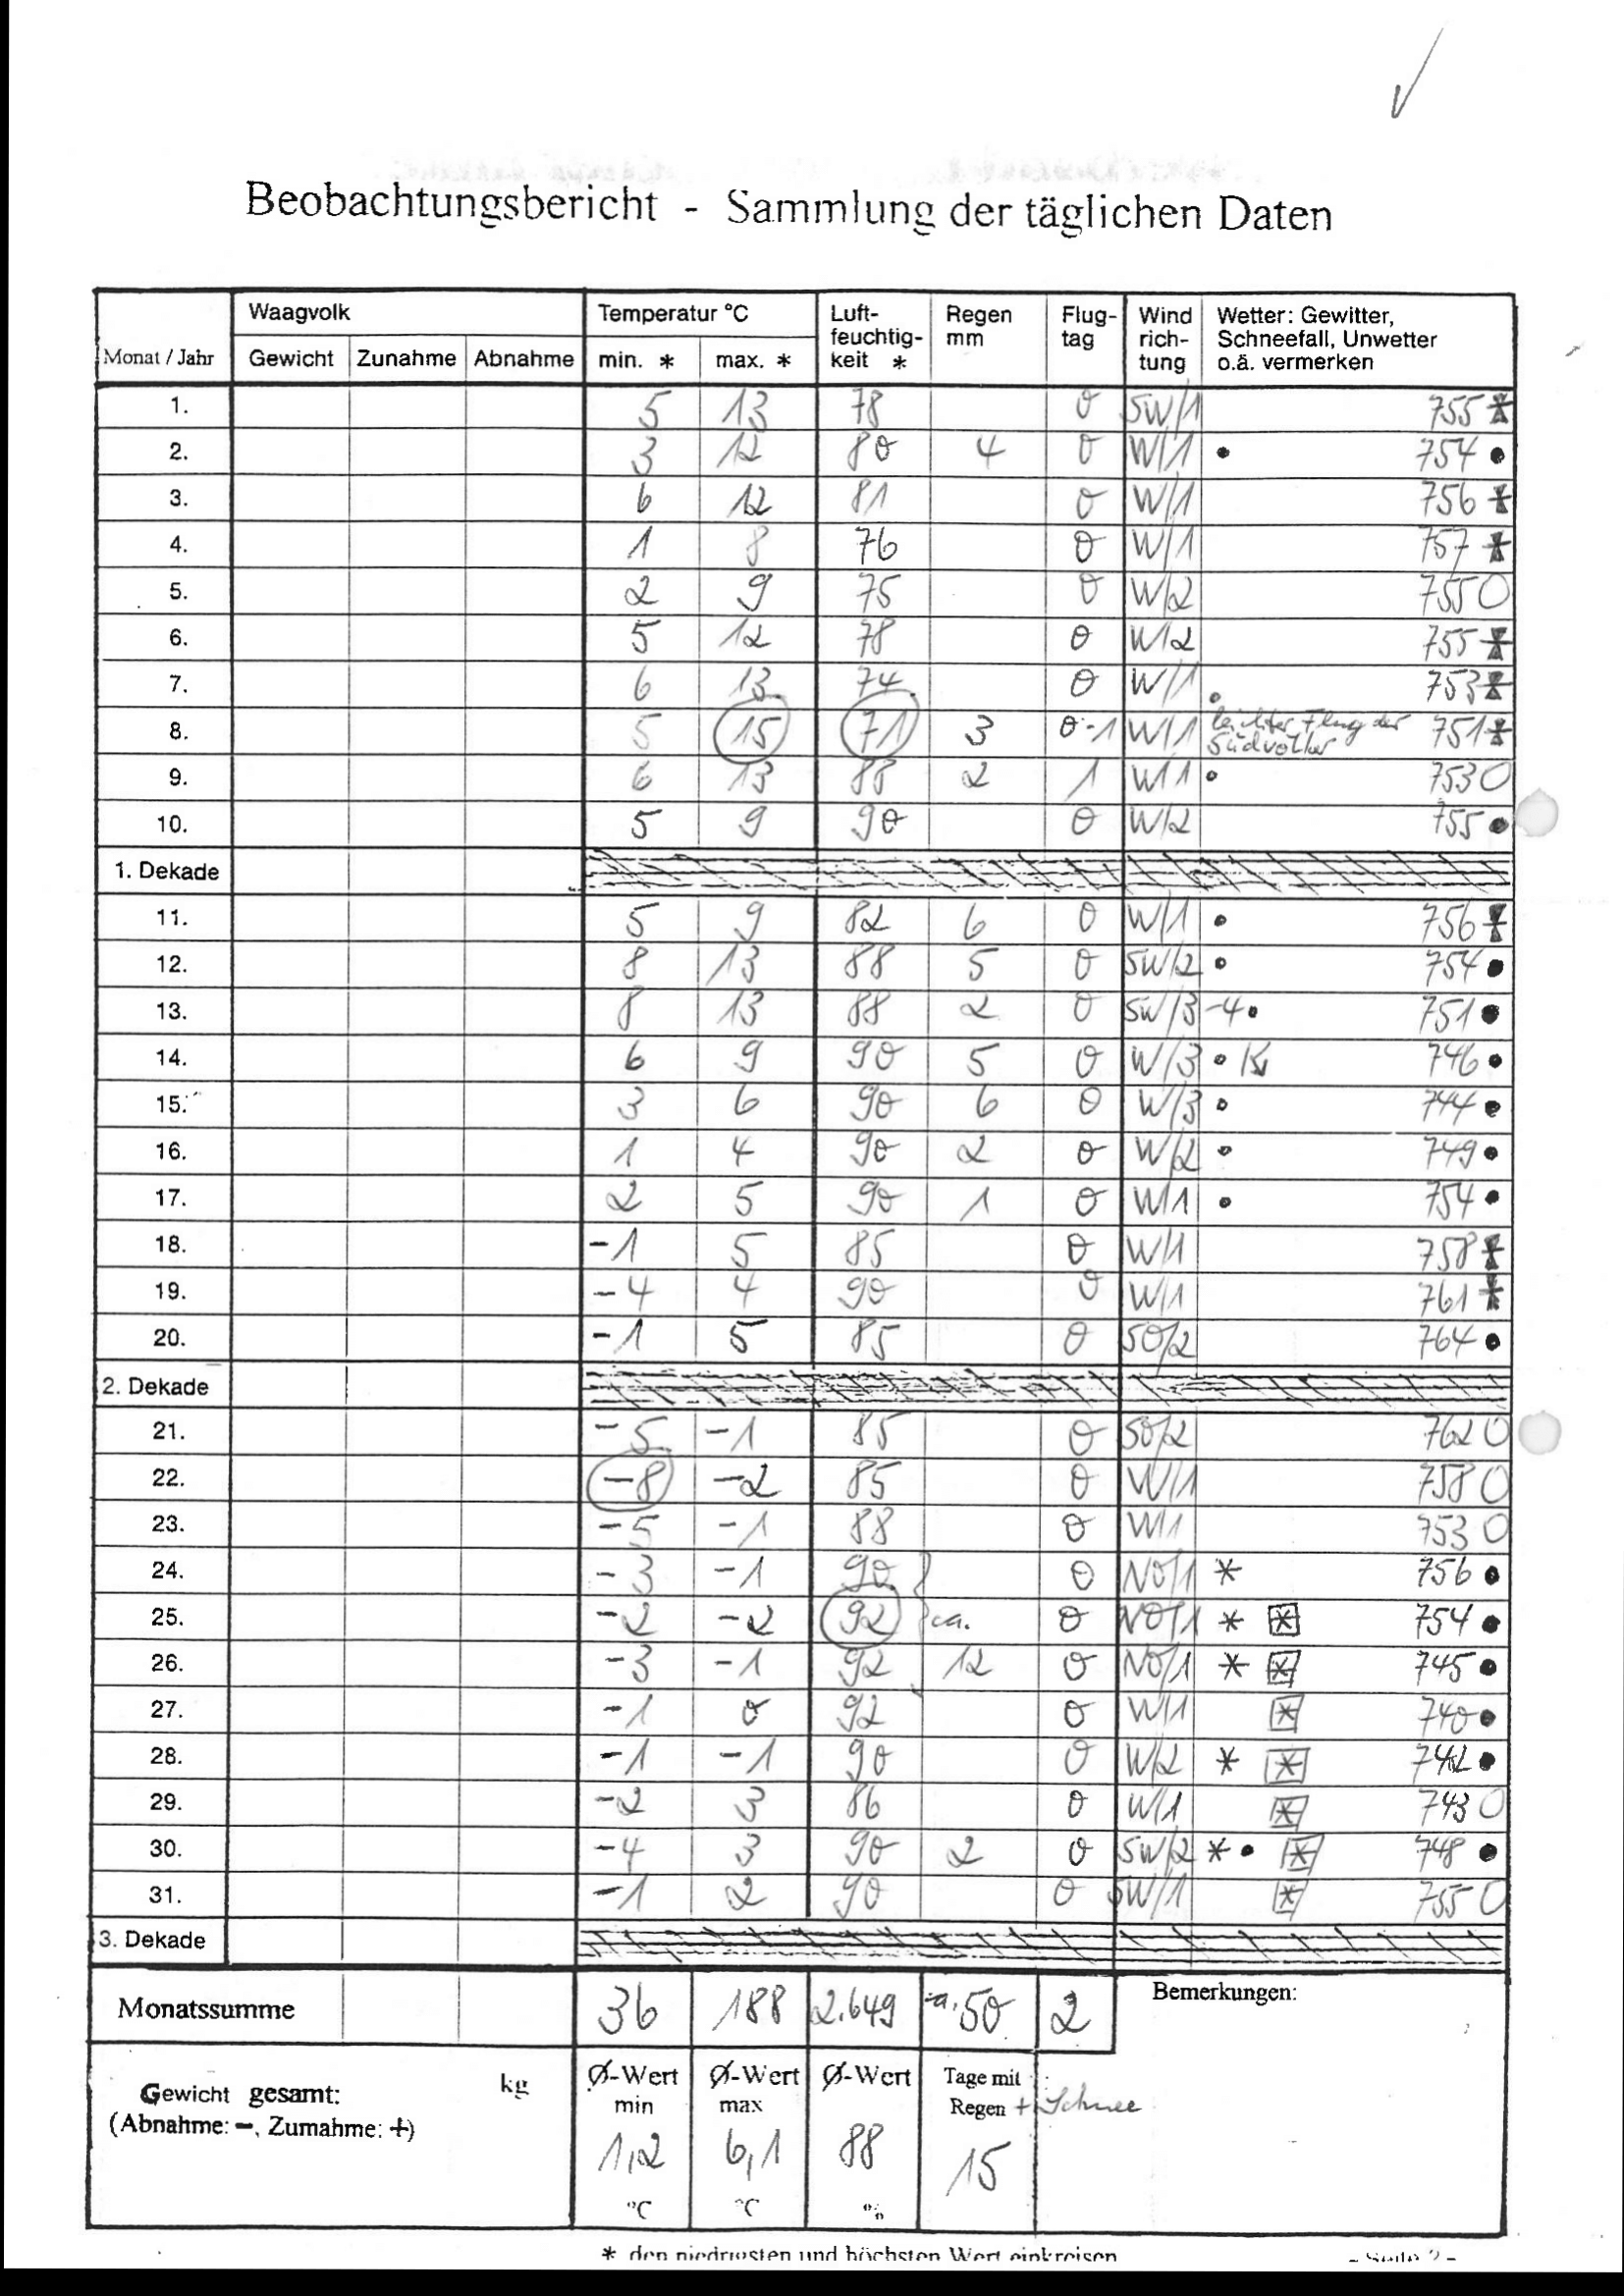 Beobachtungsbericht - Sammlung der täglichen Daten
Monat / Jahr Waagvolk Temperatur °C Luft-feuchtig-keit * Regen mm Flug-tag Wind rich-tung Wetter: Gewitter, Schneefall, Unwetter o.ä. vermerken
Gewicht Zunahme Abnahme min. * max. *
1. 5 13 78 0 SW/1 755
2. 3 12 80 4 0 W/1 • 754 •
3. 6 12 81 0 W/1 756
4. 1 8 76 0 W/1 757
5. 2 9 75 0 W/2 755 O
6. 5 12 78 0 W/2 755
7. 6 13 74 0 W/1 753
8. 5 15 71 3 0-1 W/1 leichter Flug der Südvölker 751
9. 6 13 88 2 1 W/1 • 753 O
10. 5 9 90 0 W/2 755 •
1. Dekade
11. 5 9 82 6 0 W/1 • 756
12. 8 13 88 5 0 SW/2 • 754 •
13. 8 13 88 2 0 SW/3-4 • 751 •
14. 6 9 90 5 0 W/3 • 746 •
15. 3 6 90 6 0 W/3 • 744 •
16. 1 4 90 2 0 W/2 • 749 •
17. 2 5 90 1 0 W/1 • 754 •
18. -1 5 85 0 W/1 758
19. -4 4 90 0 W/1 761
20. -1 5 85 0 SO/2 764 •
2. Dekade
21. -5 -1 85 0 SO/2 762 O
22. -8 -2 85 0 W/1 758 O
23. -5 -1 88 0 W/1 753 O
24. -3 -1 90 0 NO/1 * 756 •
25. -2 -2 92 ca. 0 NO/1 * * 754 •
26. -3 -1 92 12 0 NO/1 * * 745 •
27. -1 0 92 0 W/1 * 740 •
28. -1 -1 90 0 W/2 * * 742 •
29. -2 3 86 0 W/1 * 743 O
30. -4 3 90 2 0 SW/2 * • * 748 •
31. -1 2 90 0 SW/1 * 755 O
3. Dekade
Monatssumme 36 188 2.649 ca. 50 2 Bemerkungen:
Gewicht gesamt: kg
(Abnahme: -, Zumahme: +)
Ø-Wert min Ø-Wert max Ø-Wert Tage mit Regen + Schnee
1,2 6,1 88 15
°C °C %
* den niedrigsten und höchsten Wert einkreisen - Seite 2 -